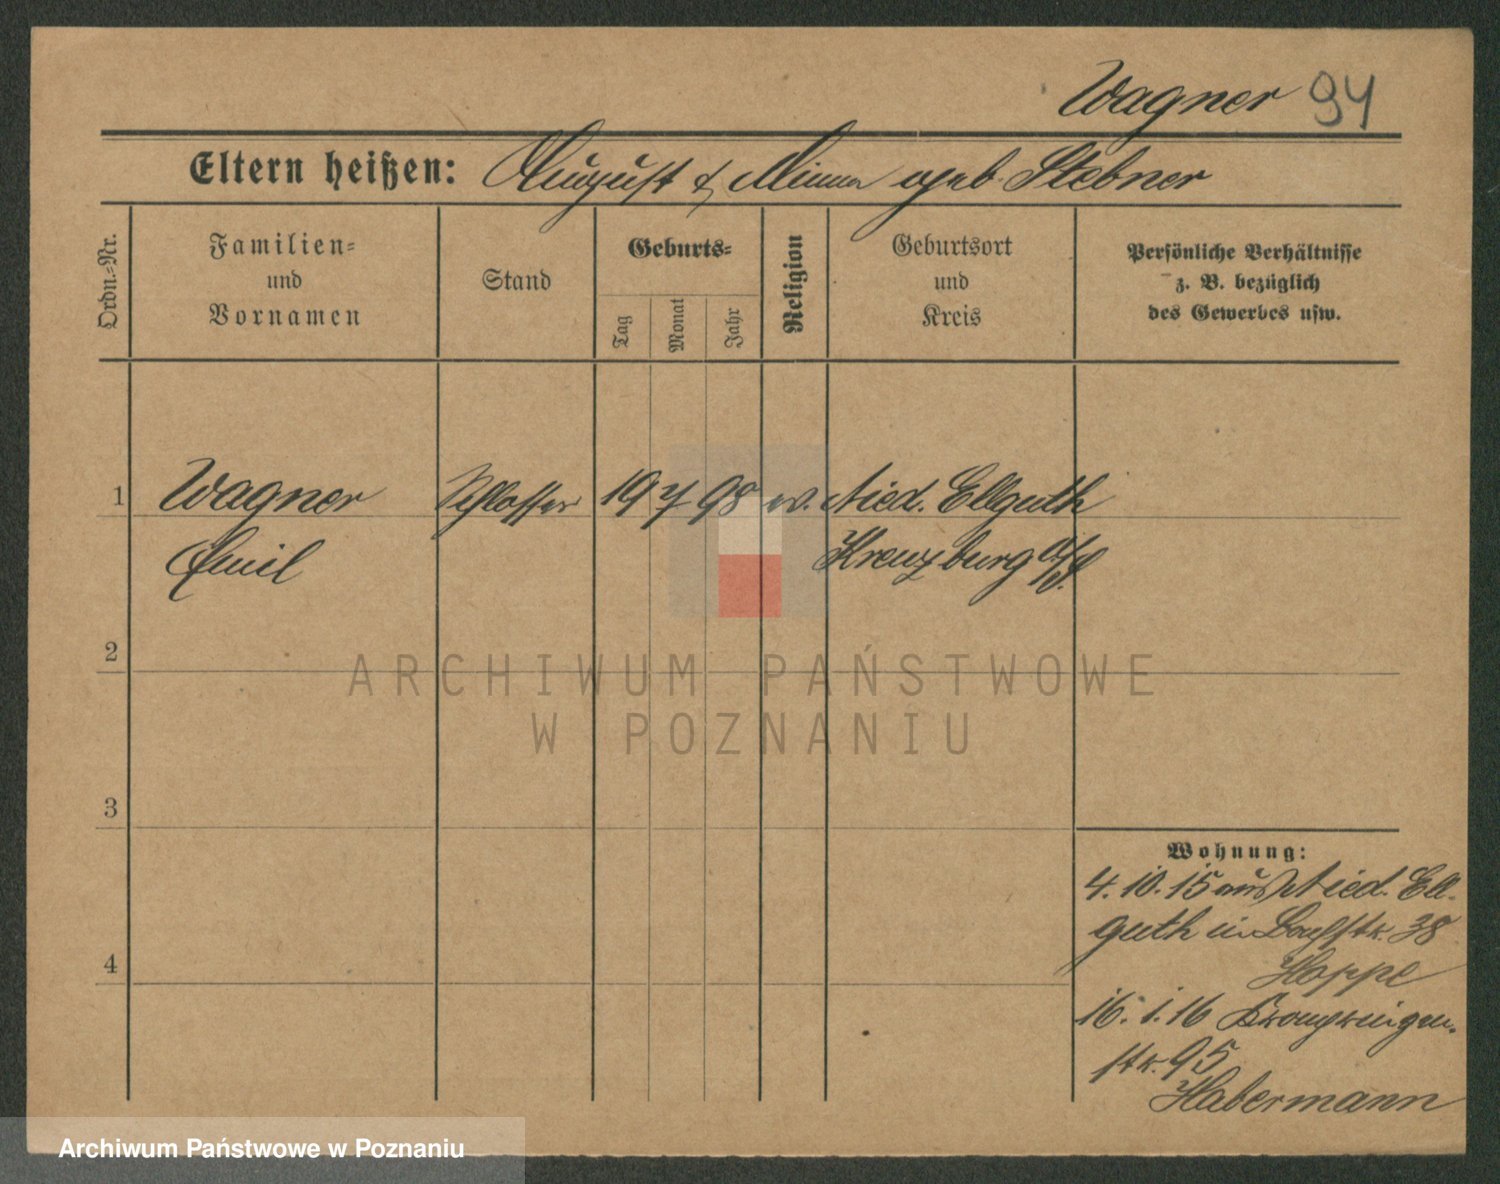 Wagner 94
Eltern heißen: August & Minna geb. Stebner
Ordn.-Nr.
Familien-
und
Vornamen
Stand
Geburts-
Tag
Monat
Jahr
Religion
Geburtsort
und
Kreis
Persönliche Verhältnisse
z. B. bezüglich
des Gewerbes usw.
1 Wagner Schlosser 19 7 98 ev. Nied. Ellguth
Emil Kreuzburg O/S.
2
ARCHIWUM PAŃSTWOWE
W POZNANIU
3
Wohnung:
4. 10. 15 aus Nied. Ell-
guth in 38
4
Hoppe
16. 1. 16 Kronprinzen-
str. 95
Habermann
Archiwum Państwowe w Poznaniu